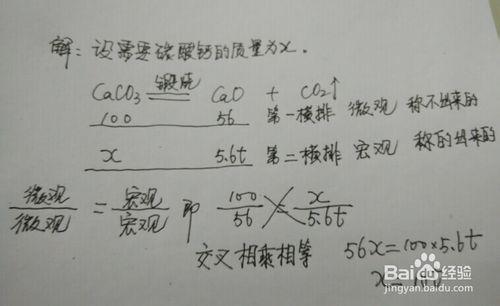 解：设需要碳酸钙的质量为x.
煅烧
CaCO₃ ═══ CaO + CO₂↑
100 56 第一横排 微观 称不出来的
x 5.6t 第二横排 宏观 称的出来的
微观/微观 = 宏观/宏观 即 100/56 = x/5.6t
交叉相乘相等 56x=100×5.6t
x=
Baidu 经验
jingyan.baidu.com